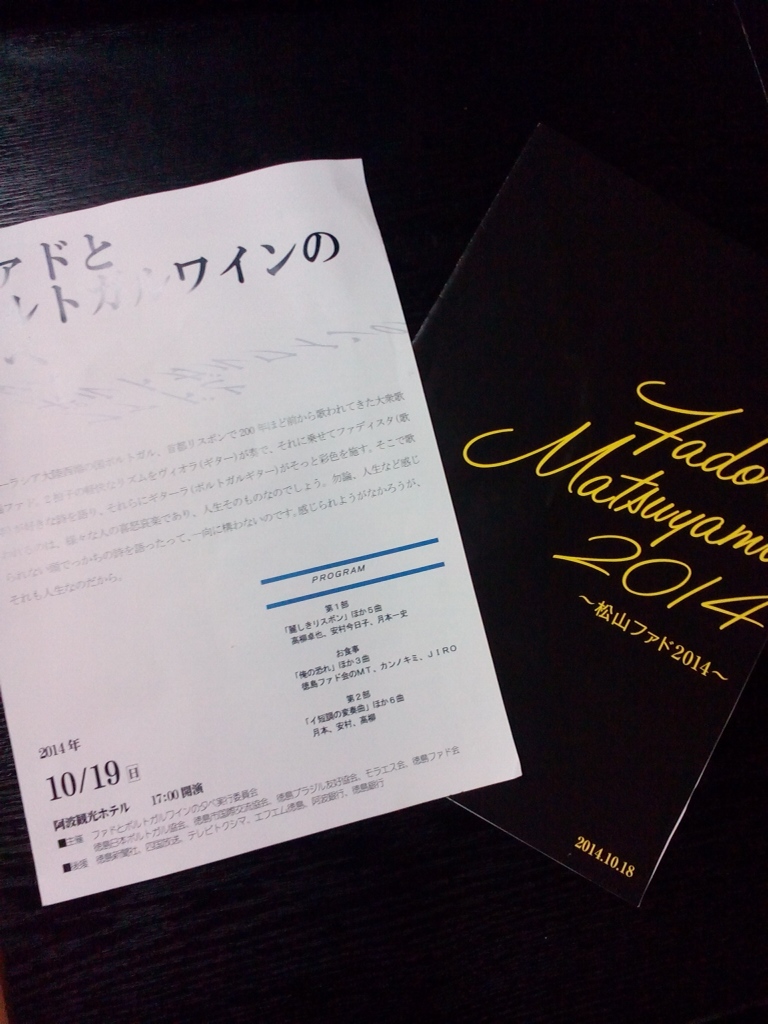 ァドと
ルトガルワインの
ーラシア大陸西端の国ポルトガル、首都リスボンで200年ほど前から歌われてきた大衆歌
ファド。2拍子の軽快なリズムをヴィオラ(ギター)が奏で、それに乗せてファディスタ(歌
が好きな詩を語り、それらにギターラ(ポルトガルギター)がそっと彩色を施す。そこで歌
われるのは、様々な人の喜怒哀楽であり、人生そのものなのでしょう。勿論、人生など感じ
られない頭でっかちの詩を語ったって、一向に構わないのです。感じられようがなかろうが、
それも人生なのだから。
PROGRAM
第1部
「麗しきリスボン」ほか5曲
高柳卓也、安村今日子、月本一史
お食事
「俺の恐れ」ほか3曲
徳島ファド会のMT、カンノキミ、JIRO
第2部
「イ短調の変奏曲」ほか6曲
月本、安村、高柳
2014年
10/19 日
阿波観光ホテル 17:00開演
■主催 ファドとポルトガルワインの夕べ実行委員会
徳島日本ポルトガル協会、徳島市国際交流協会、徳島ブラジル友好協会、モラエス会、徳島ファド会
■後援 徳島新聞社、四国放送、テレビトクシマ、エフエム徳島、阿波銀行、徳島銀行
Fado
Matsuyama
2014
〜松山ファド2014〜
2014.10.18